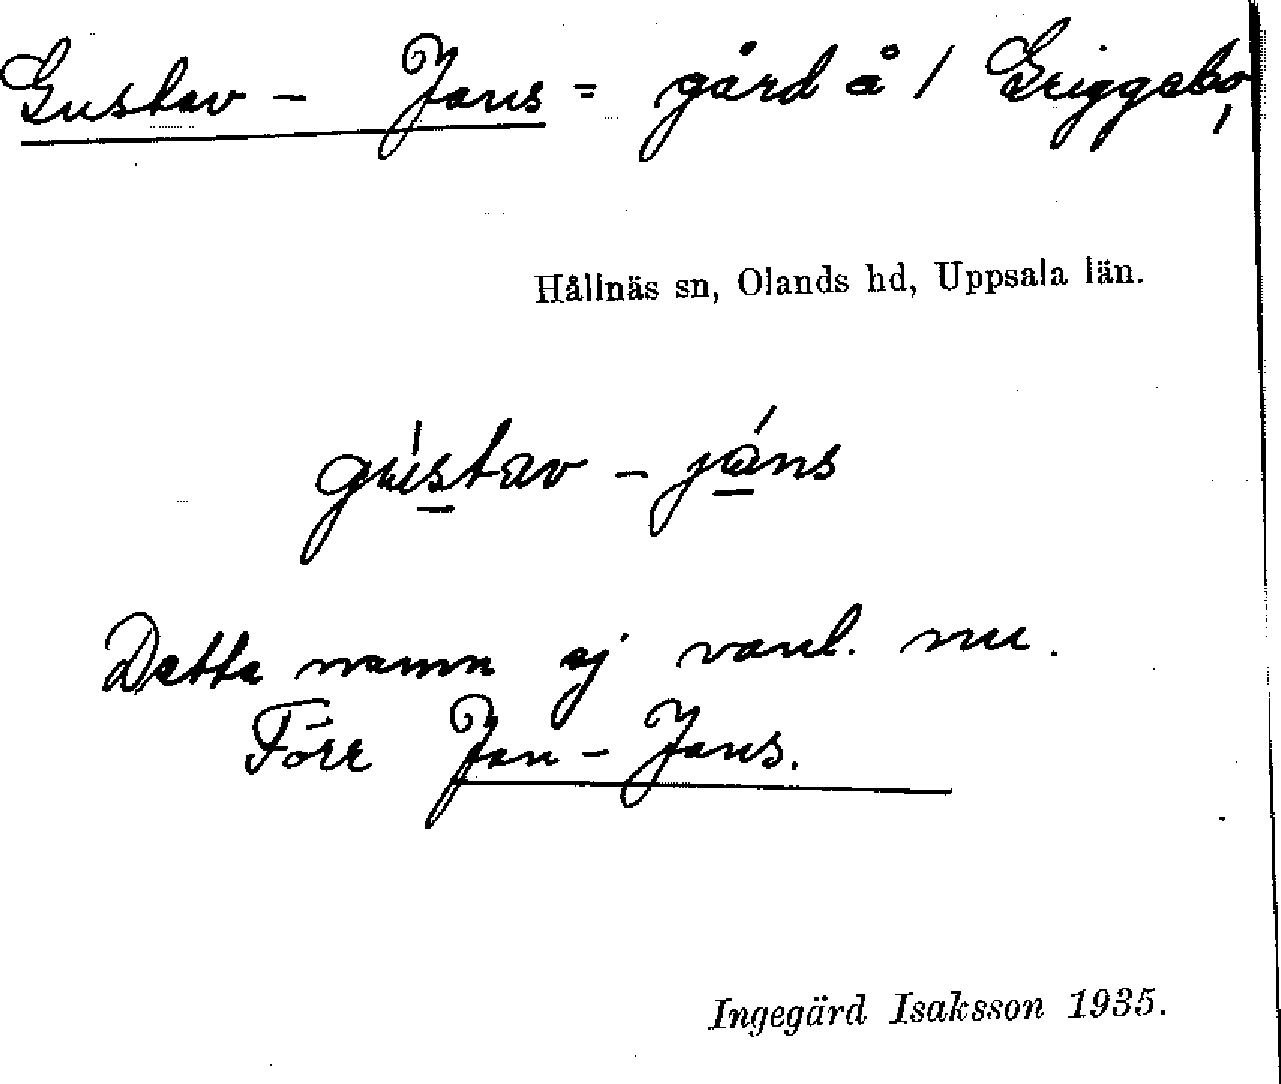 Gustav - Jans = gård å / Griggebo,
Hållnäs sn, Olands hd, Uppsala län.
gústav - jáns
Detta namn ej vanl. nu.
Förr Jan - Jans.
Ingegärd Isaksson 1935.